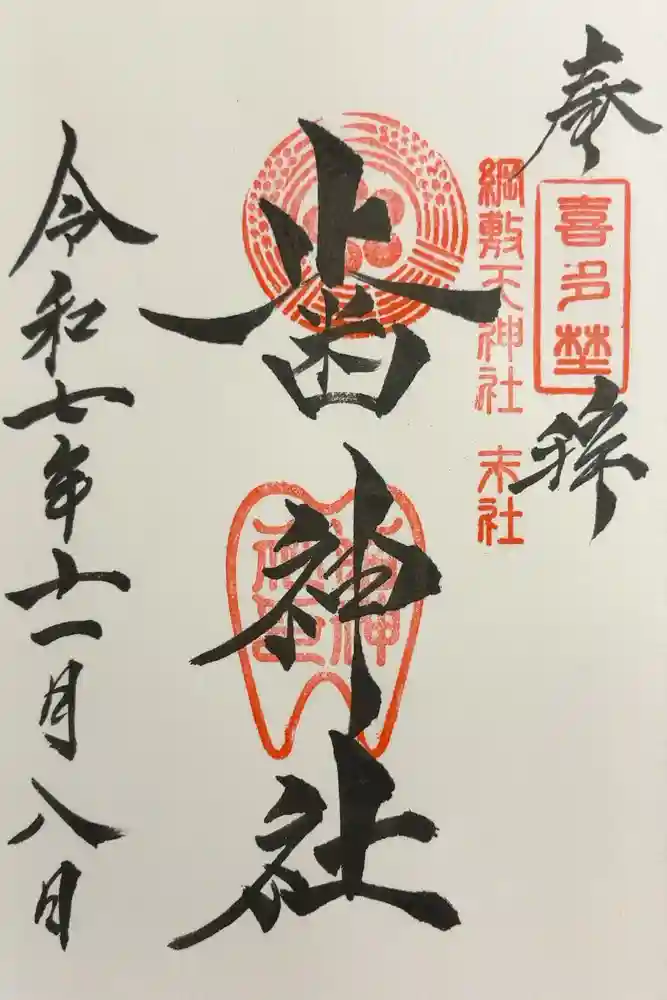 奉拝
喜多埜
綱敷天神社 末社
歯神社
歯神社璽
令和七年十一月八日